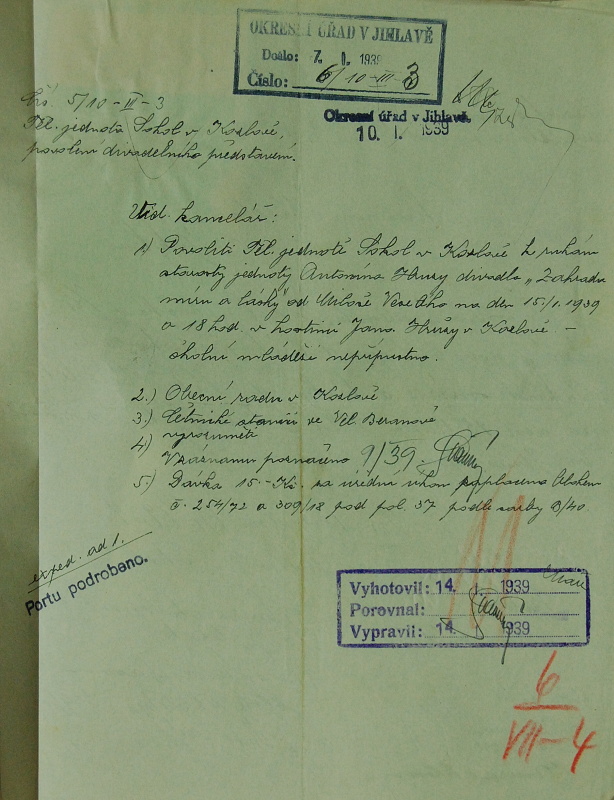 OKRESNÍ ÚŘAD V JIHLAVĚ
Došlo: 7. I. 1939
Číslo: 6/10-III-3
Okresní úřad v Jihlavě.
10. I. 1939
Čís. 5/10-III-3
Těl. jednota Sokol v Kozlově,
povolení divadelního představení.
Vid. kancelář:
1) Povoliti Těl. jednotě Sokol v Kozlově k rukám
starosty jednoty Antonína Hrůzy divadlo „Zahradu
míru a lásky" od Miloše Veselého na den 15./1. 1939
o 18 hod. v hostinci Jana Hrůzy v Kozlově –
školní mládeži nepřípustno.
2.) Obecní radu v Kozlově
3.) Četnické stanici ve Vel. Beranově
vyrozuměti
4.) V záznamu poznačeno 9/39.
5.) Dávka 15.- Kč. za úřední úkon zaplacena
č. 254/72 a 309/18 pod pol. 37 podle sazby 9/40.
exped. ad 1.
Portu podrobeno.
Vyhotovil: 14. 1939
Porovnal:
Vypravil: 14. 1939
6
VII-4